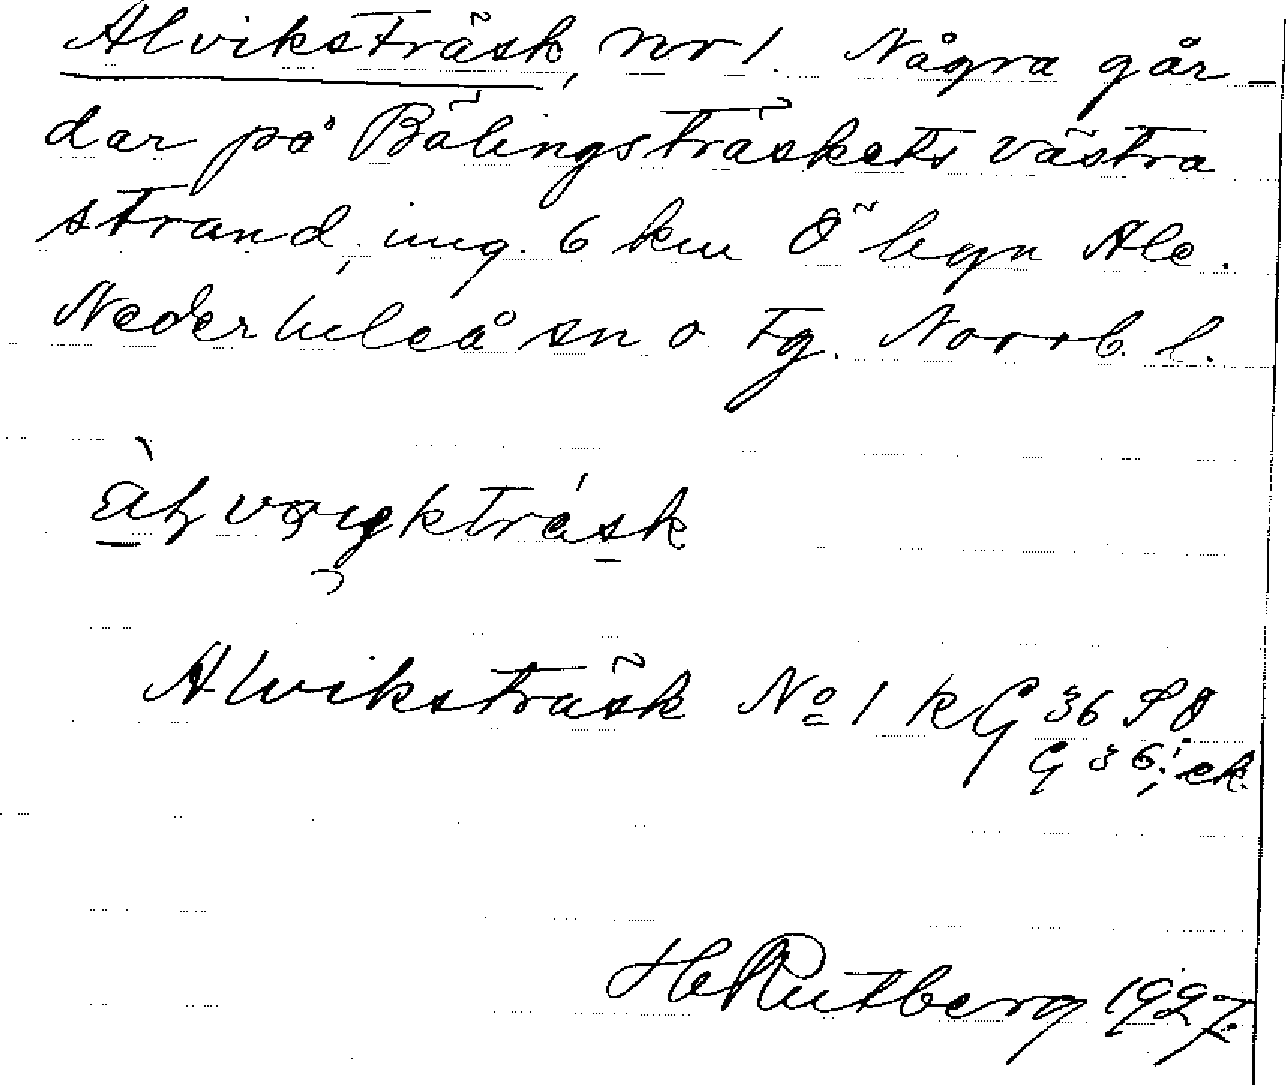 Alviksträsk, nr 1. Några går-
dar på Bälingsträskets västra
strand, ung. 6 km Ö byn Ale.
Nederluleå sn o tg. Norrb. l.
Alviksträsk No 1 k G 36 SO
G 36; ek.
H Rutberg 1927.